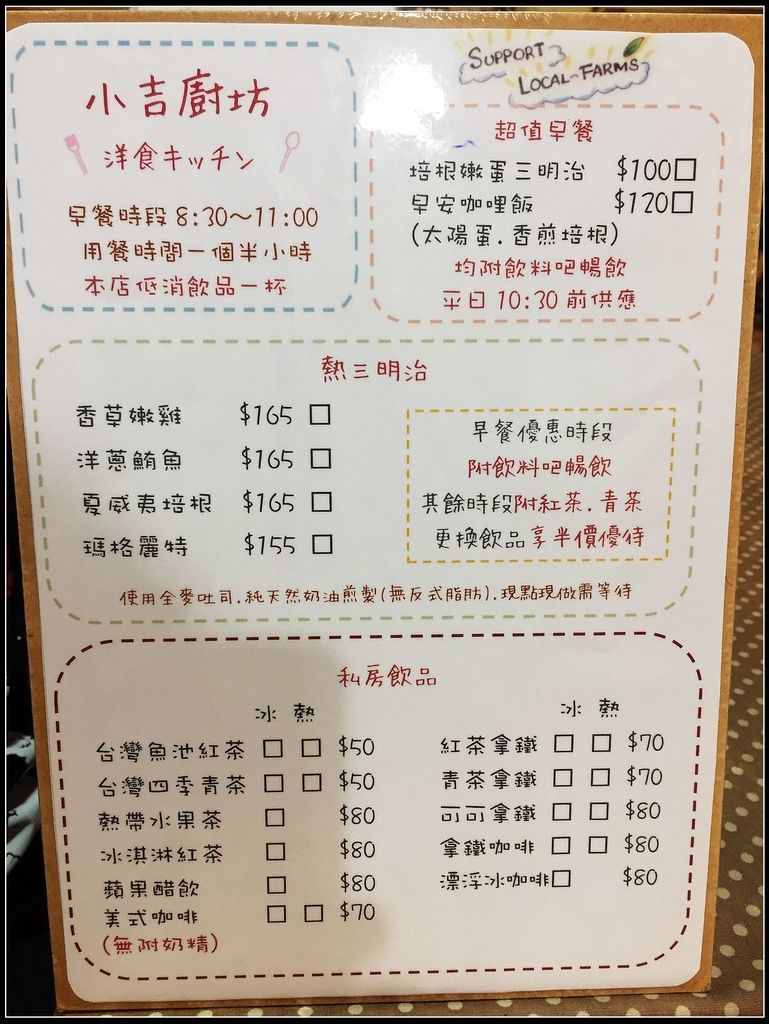 小吉廚坊
洋食キッチン
早餐時段 8:30～11:00
用餐時間一個半小時
本店低消飲品一杯
SUPPORT
LOCAL-FARMS
超值早餐
培根嫩蛋三明治 $100□
早安咖哩飯 $120□
(太陽蛋.香煎培根)
均附飲料吧暢飲
平日 10:30 前供應
熱三明治
香草嫩雞 $165 □
洋蔥鮪魚 $165 □
夏威夷培根 $165 □
瑪格麗特 $155 □
早餐優惠時段
附飲料吧暢飲
其餘時段附紅茶.青茶
更換飲品享半價優待
使用全麥吐司.純天然奶油煎製(無反式脂肪).現點現做需等待
私房飲品
冰 熱
台灣魚池紅茶 □ □ $50
台灣四季青茶 □ □ $50
熱帶水果茶 □ $80
冰淇淋紅茶 □ $80
蘋果醋飲 □ $80
美式咖啡 □ □ $70
(無附奶精)
冰 熱
紅茶拿鐵 □ □ $70
青茶拿鐵 □ □ $70
可可拿鐵 □ □ $80
拿鐵咖啡 □ □ $80
漂浮冰咖啡□ $80